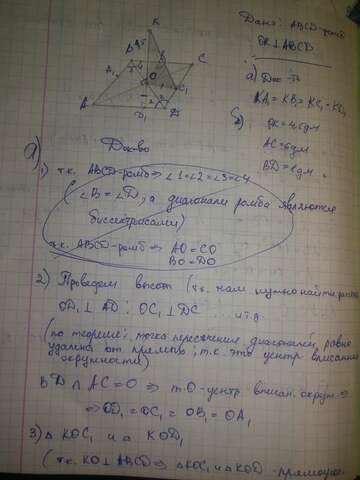 K
Дано: ABCD-ромб
OK ⊥ ABCD
B
C
A
D
O
C₁
D₁
а) Док-ть
KA₁ = KB₁ = KC₁ = KD₁
б)
AC = 6дм
BD = 8дм
Док-во
а)
1) т.к. ABCD-ромб ⇒ ∠1=∠2=∠3=∠4
(∠B = ∠D, а диагонали ромба являются
биссектрисами)
т.к. ABCD-ромб ⇒ AO = CO
BO = DO
2) Проведем высоты (т.к. нам нужно найти
OD₁ ⊥ AD; OC₁ ⊥ DC и т.д.
(по теореме: точка пересечения диагоналей равно
удалена от прямого; т.к. это центр вписанной
окружности)
BD ∩ AC = O ⇒ т.O-центр вписан. окруж. ⇒
⇒ OD₁ = OC₁ = OB₁ = OA₁
3) Δ KOC₁ и Δ KOD₁
(т.к. KO ⊥ ABCD ⇒ Δ KOC₁ и Δ KOD-прямоуг.